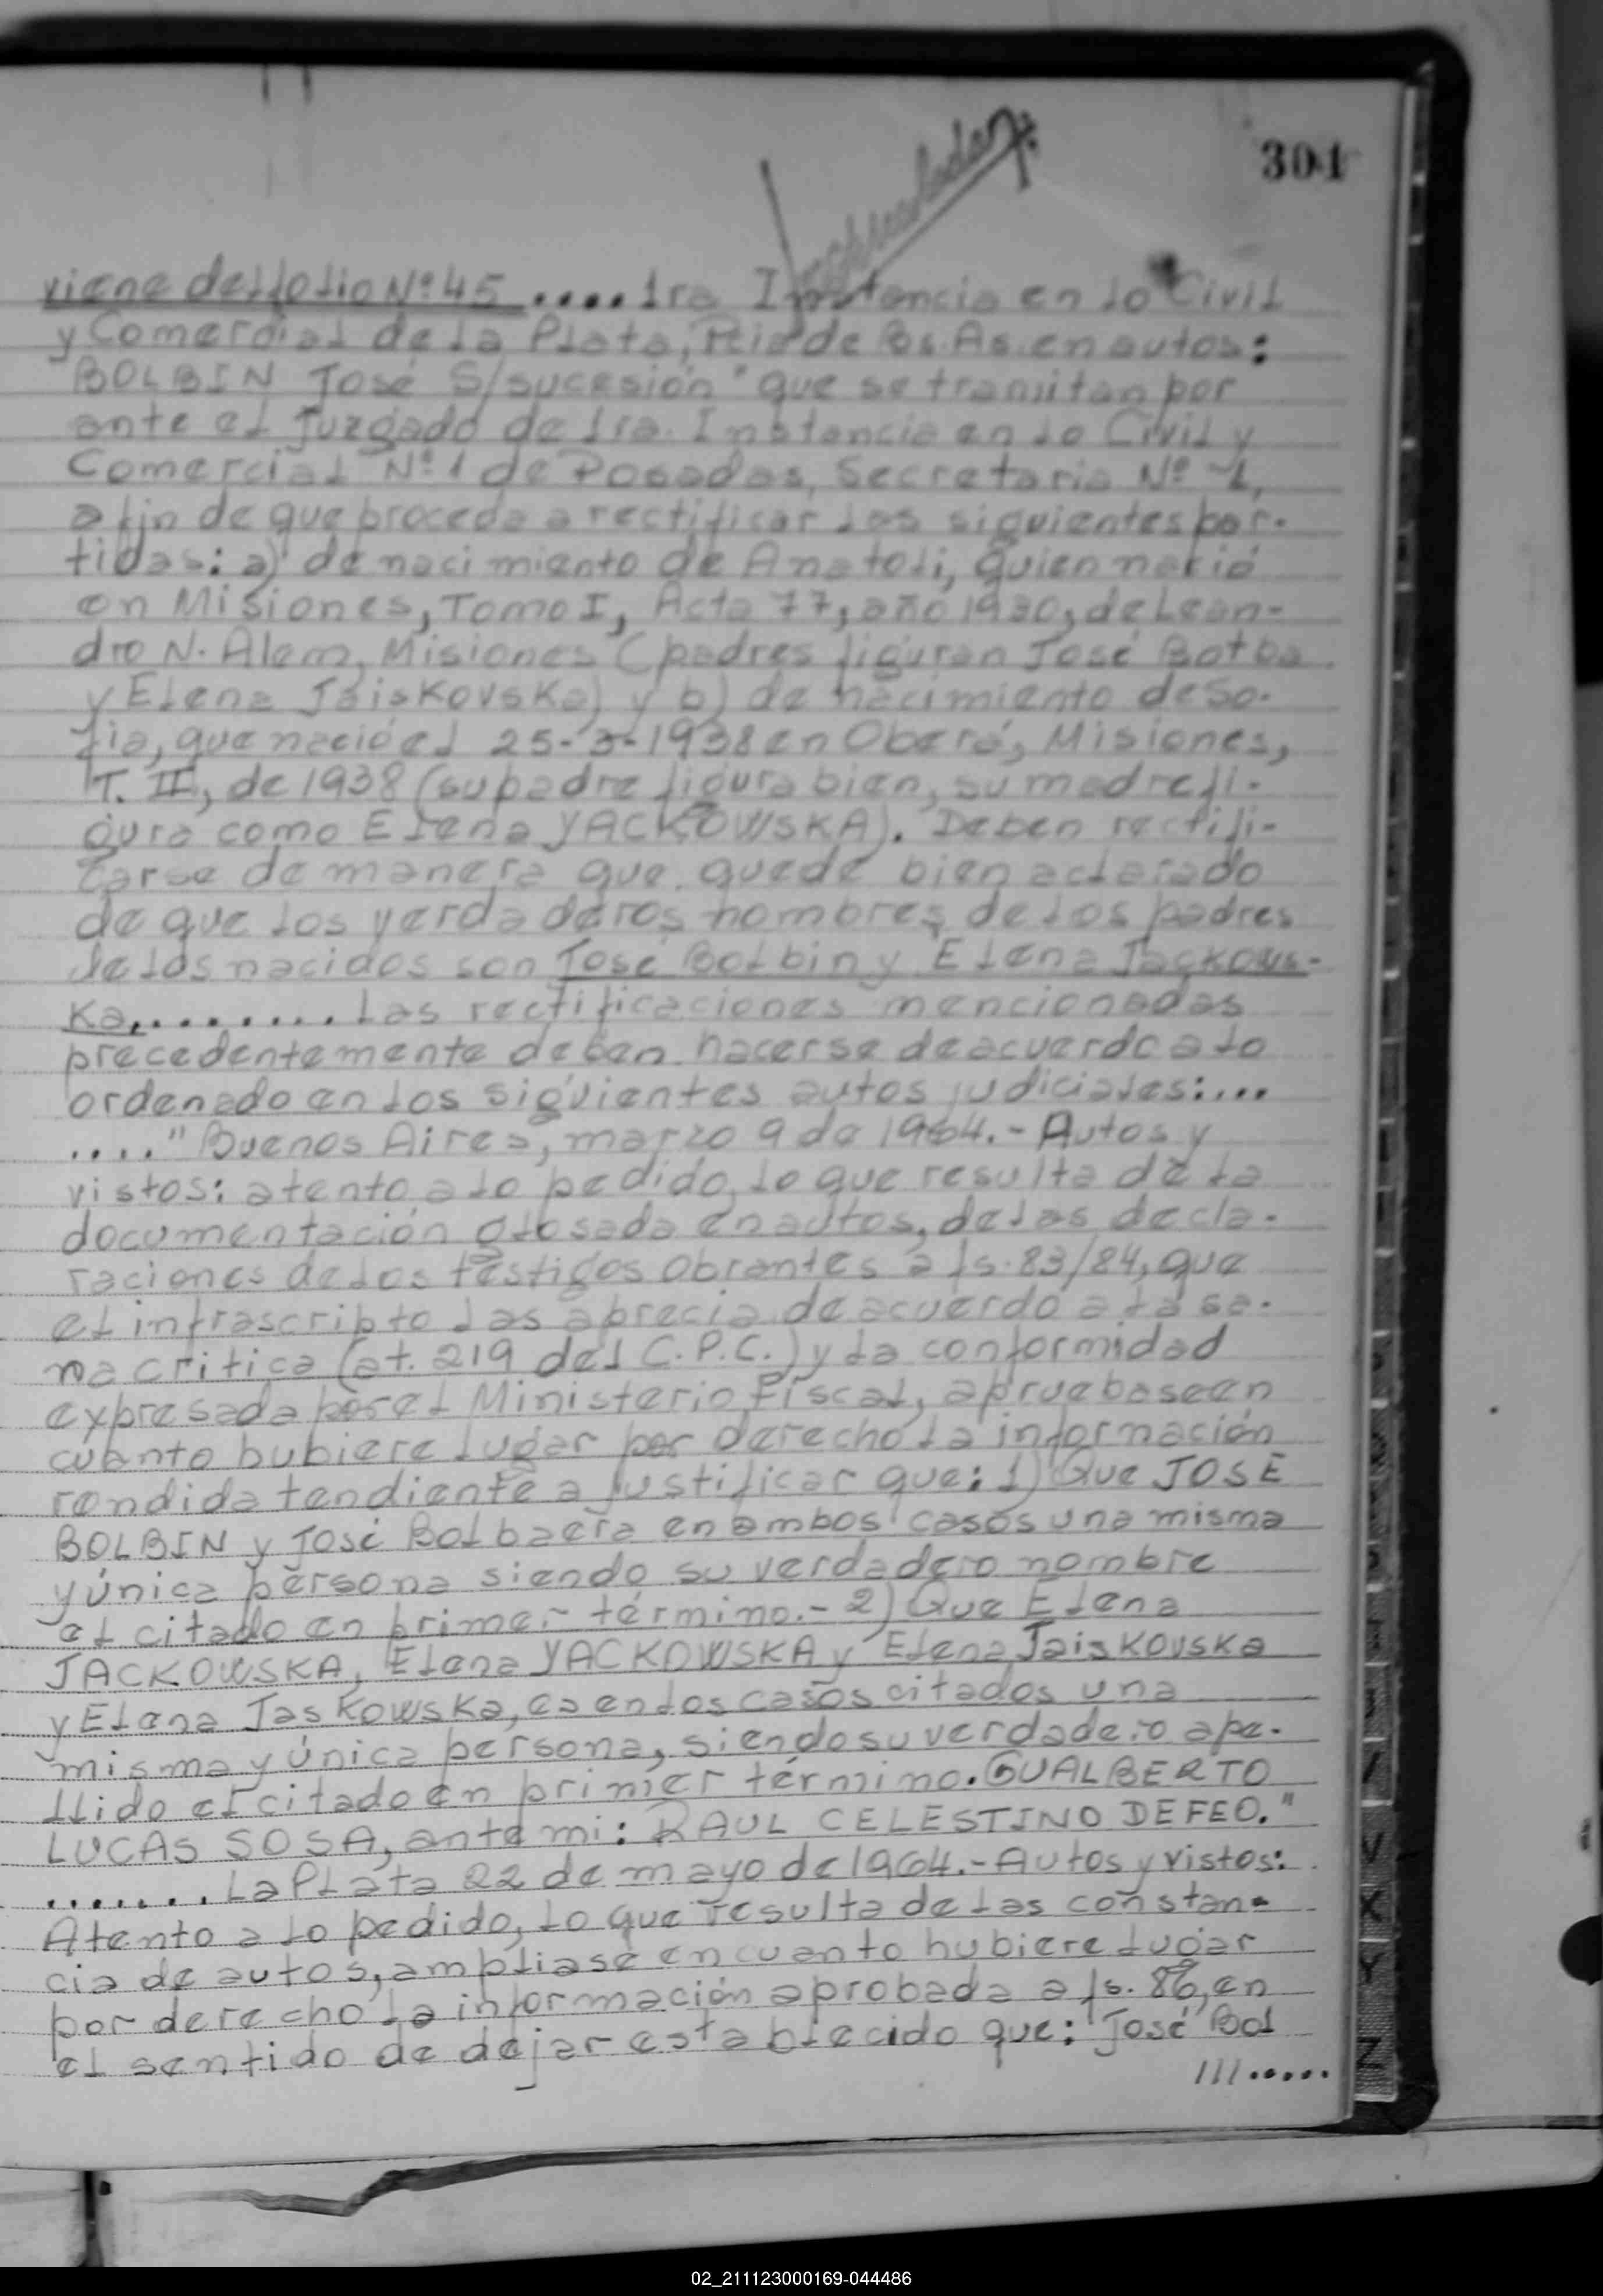 304
viene del folio Nº 45 ..... 1ra Instancia en lo Civil
y Comercial de La Plata, Pcia de Bs. As. en autos:
"BOLBIN José S/sucesión" que se tramitan por
ante el Juzgado de 1ra. Instancia en lo Civil y
Comercial Nº 1 de Posadas, Secretaria Nº 1,
a fin de que proceda a rectificar las siguientes par-
tidas: a) de nacimiento de Anatoli, quien nació
en Misiones, Tomo I, Acta 77, año 1930, de Lean-
dro N. Alem, Misiones (padres figuran José Bolba
y Elena Jaiskovska) y b) de nacimiento de So-
fia, que nació el 25-3-1938 en Oberá, Misiones,
T. II, de 1938 (su padre figura bien, su madre fi-
gura como Elena YACKOWSKA). Deben rectifi-
carse de manera que quede bien aclarado
de que los verdaderos nombres de los padres
de los nacidos son José Bolbin y Elena Jackows-
ka,........ Las rectificaciones mencionadas
precedentemente deben hacerse de acuerdo a lo
ordenado en los siguientes autos judiciales:....
...." Buenos Aires, marzo 9 de 1964.- Autos y
vistos: atento a lo pedido, lo que resulta de la
documentación glosada en autos, de las decla-
raciones de los testigos obrantes a fs. 83/84, que
el infrascripto las aprecia de acuerdo a la sa-
na critica (at. 219 del C.P.C.) y la conformidad
expresada por el Ministerio Fiscal, apruebase en
cuanto hubiere lugar por derecho la información
rendida tendiente a justificar que: 1) Que JOSE
BOLBIN y José Bolba era en ambos casos una misma
y única persona siendo su verdadero nombre
el citado en primer término.- 2) Que Elena
JACKOWSKA, Elena YACKOWSKA y Elena Jaiskovska
y Elena Jaskowska, es en los casos citados una
misma y única persona, siendo su verdadero ape-
llido el citado en primer término. GUALBERTO
LUCAS SOSA, ante mi: RAUL CELESTINO DEFEO."
....... La Plata 22 de mayo de 1964.- Autos y vistos:
Atento a lo pedido, lo que resulta de las constan-
cia de autos, ampliase en cuanto hubiere lugar
por derecho la información aprobada a fs. 86, en
el sentido de dejar establecido que: José Bol
///.....
V
X
Y
Z
02_211123000169-044486